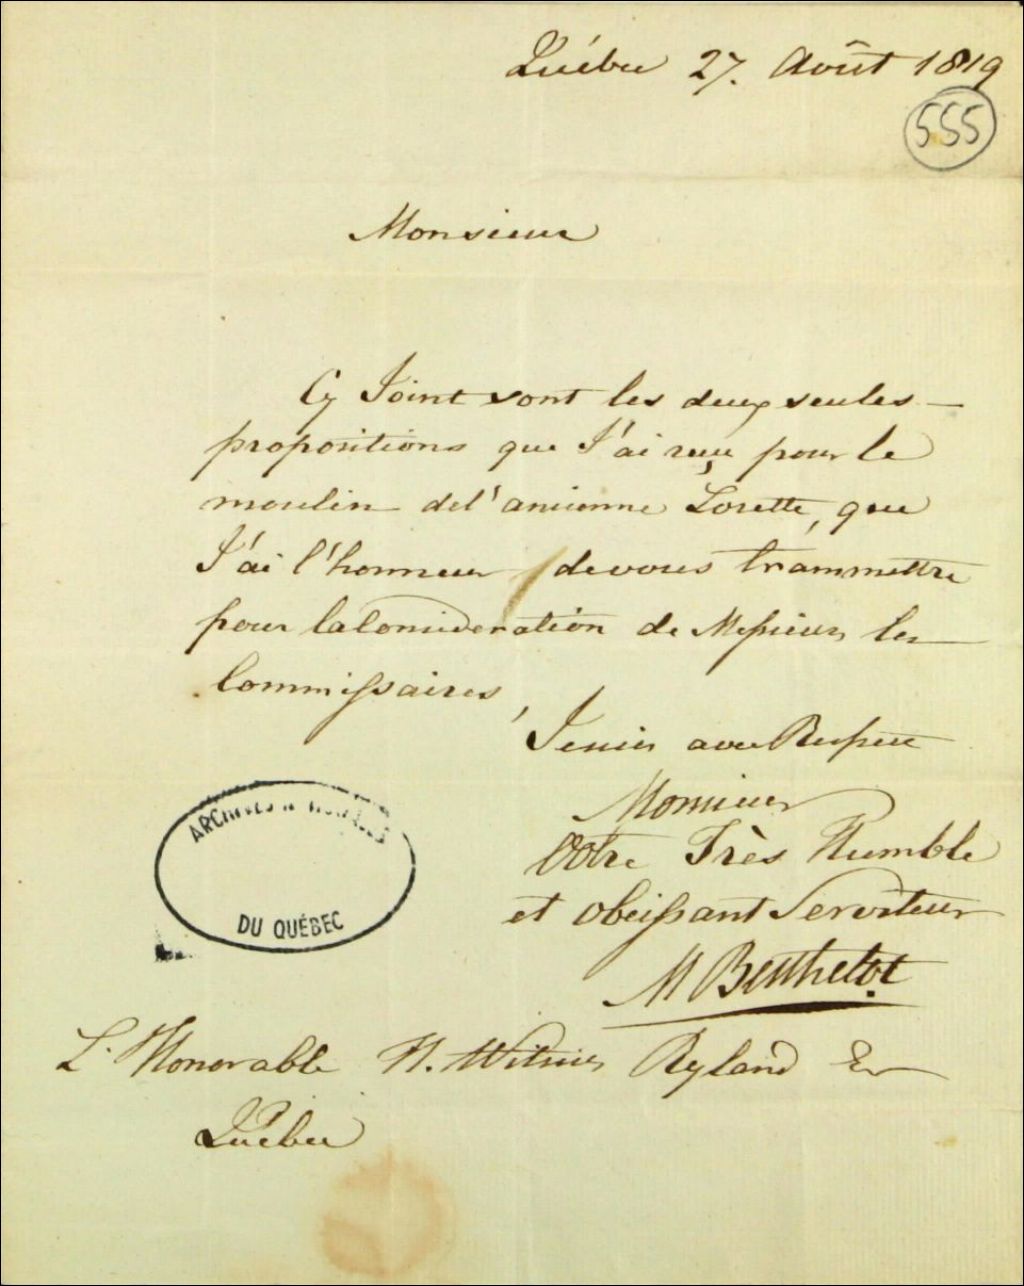 Québec 27. Août 1819
555
Monsieur
Cy Joint sont les deux seules
propositions que J'ai reçu pour le
moulin de l'ancienne Lorette, que
J'ai l'honneur de vous transmettre
pour la Consideration de Messieurs les
Commissaires,
Je suis avec Respect
Monsieur
Votre Très Humble
et obeissant Serviteur
M Berthelot
ARCHIVES NATIONALES
DU QUÉBEC
L'Honorable H. Witsius Ryland Er
Québec